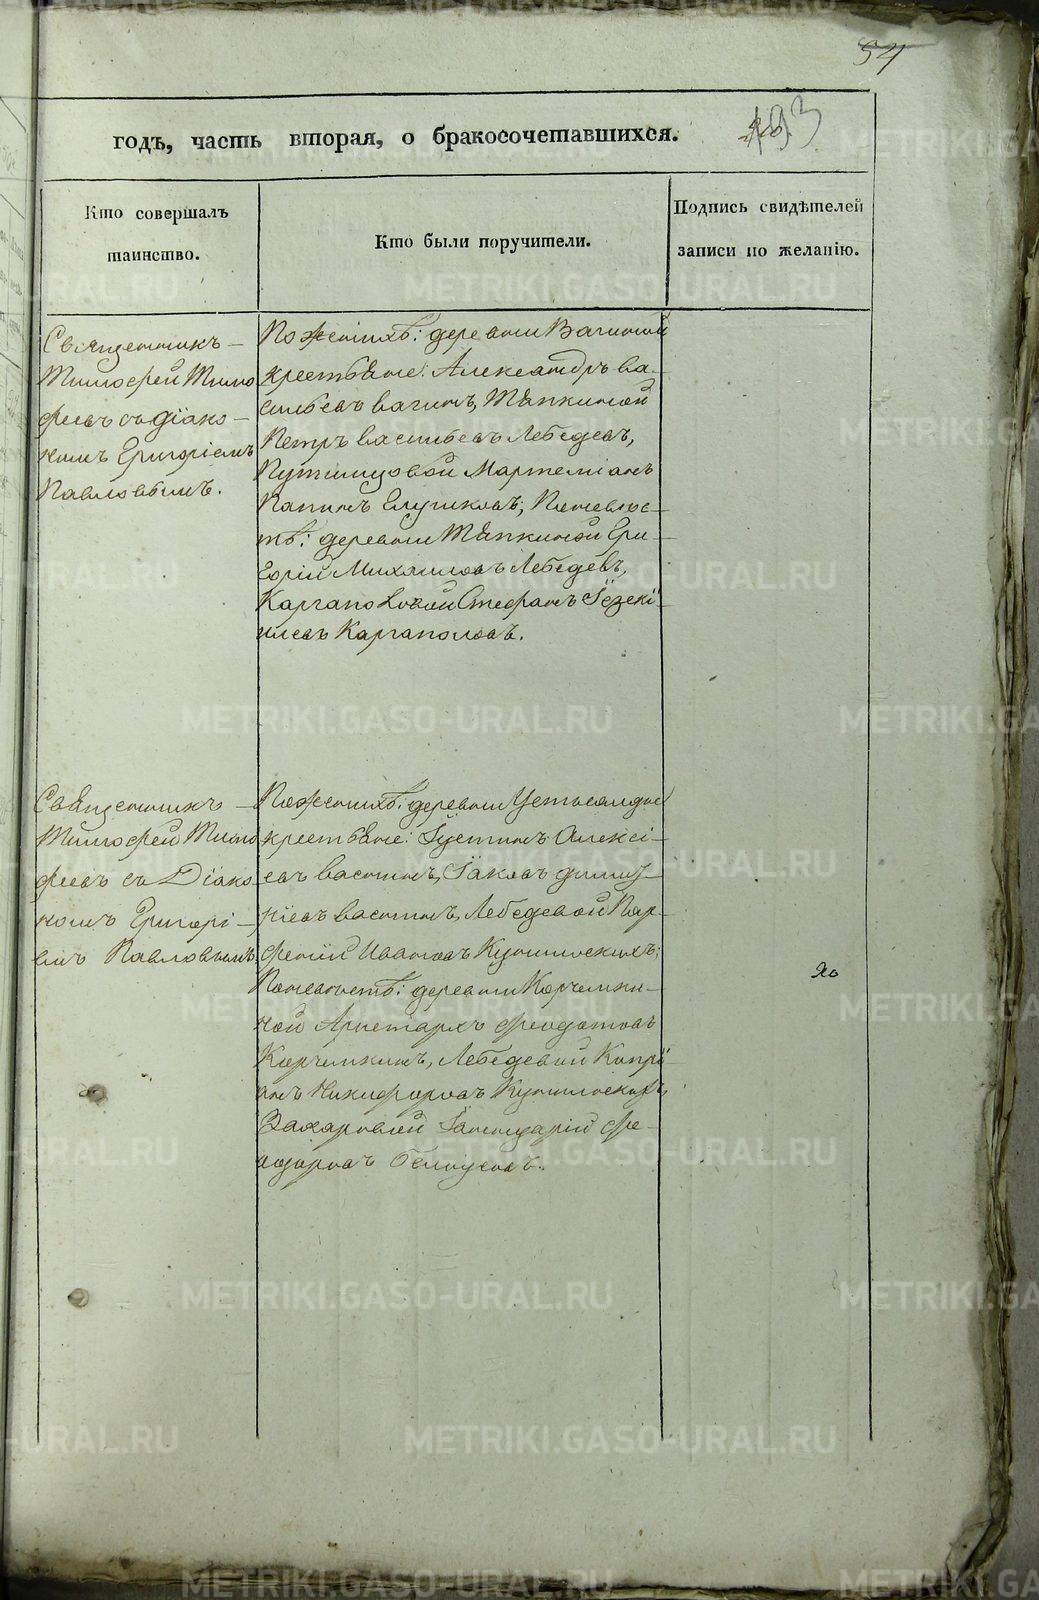 54
193
годъ, часть вторая, о бракосочетавшихся.
Кто совершалъ
таинство.
Кто были поручители.
Подпись свидѣтелей
записи по желанію.
Священникъ
Тимофей Тимо
феевъ съ діако-
номъ Григоріемъ
Павловымъ.
По женихѣ: деревни Вагиной
крестьяне: Александръ Ва-
сильевъ Вагинъ, Тяпкиной
Петръ Васильевъ Лебедевъ,
Путимцовой Мартеміанъ
Капит Елушковъ; По невѣс-
тѣ: деревни Тяпкиной Гри-
горій Михаиловъ Лебедевъ,
Каргаполовой Стефанъ Іезекі-
илевъ Каргаполовъ.
Священникъ
Тимофей Тимо
феевъ съ Діако-
номъ Григорі-
емъ Павловымъ.
По женихѣ: деревни Устьсалдов
крестьяне: Іустинъ Алексі-
евъ Васнинъ, Іаковъ Димит-
ріевъ Васнинъ, Лебедевой Пар-
феній Ивановъ Кунгинскихъ;
По невѣстѣ: деревни Корчемки-
ной Аристархъ Феодотовъ
Корчемкинъ, Лебедевой Кипрі
анъ Никифоровъ Кунгинскихъ,
Захаровой Іаннуарій Фе-
одоровъ Белоусовъ.
METRIKI.GASO-URAL.RU